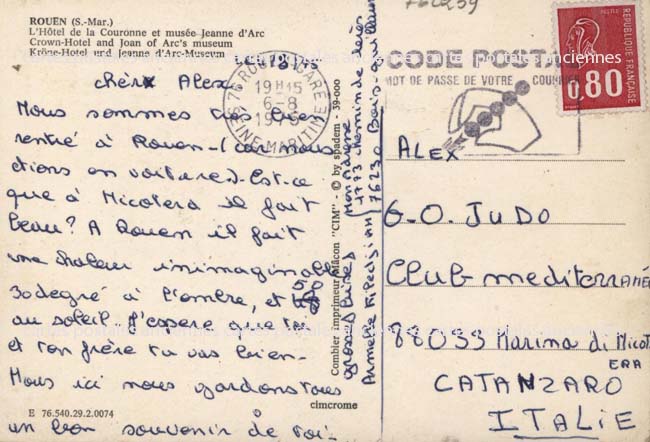 762239
ROUEN (S.-Mar.)
L'Hôtel de la Couronne et musée Jeanne d'Arc
Crown-Hotel and Joan of Arc's museum
Krone-Hotel und Jeanne d'Arc-Museum
chèrx Alex
Nous sommes très bien
rentré à Rouen - (car nous
étions en voiture). Est-ce
que à Nicotera il fait
beau? A Rouen il fait
une chaleur inimaginable
30 degré à l'ombre, et 50
au soleil J'espère que toi
et ton frère tu vas bien -
Nous ici nous gardons tous
un bon souvenir de toi -
grosses bises
Mon adresse
1773 chemin de
76230 Bois-Guillaume
E 76.540.29.2.0074
cimcrome
Combier imprimeur Mâcon "CIM" - © by spadem - 39-000
76 ROUEN GARE
19H15
6-8
SEINE MARITIME
CODE POSTAL
MOT DE PASSE DE VOTRE COURRIER
0,80
RÉPUBLIQUE FRANÇAISE
POSTES
ALEX
G.O. JUDO
Club mediterrané
88033 Marina di Nicot
ERA
CATANZARO
ITALIE